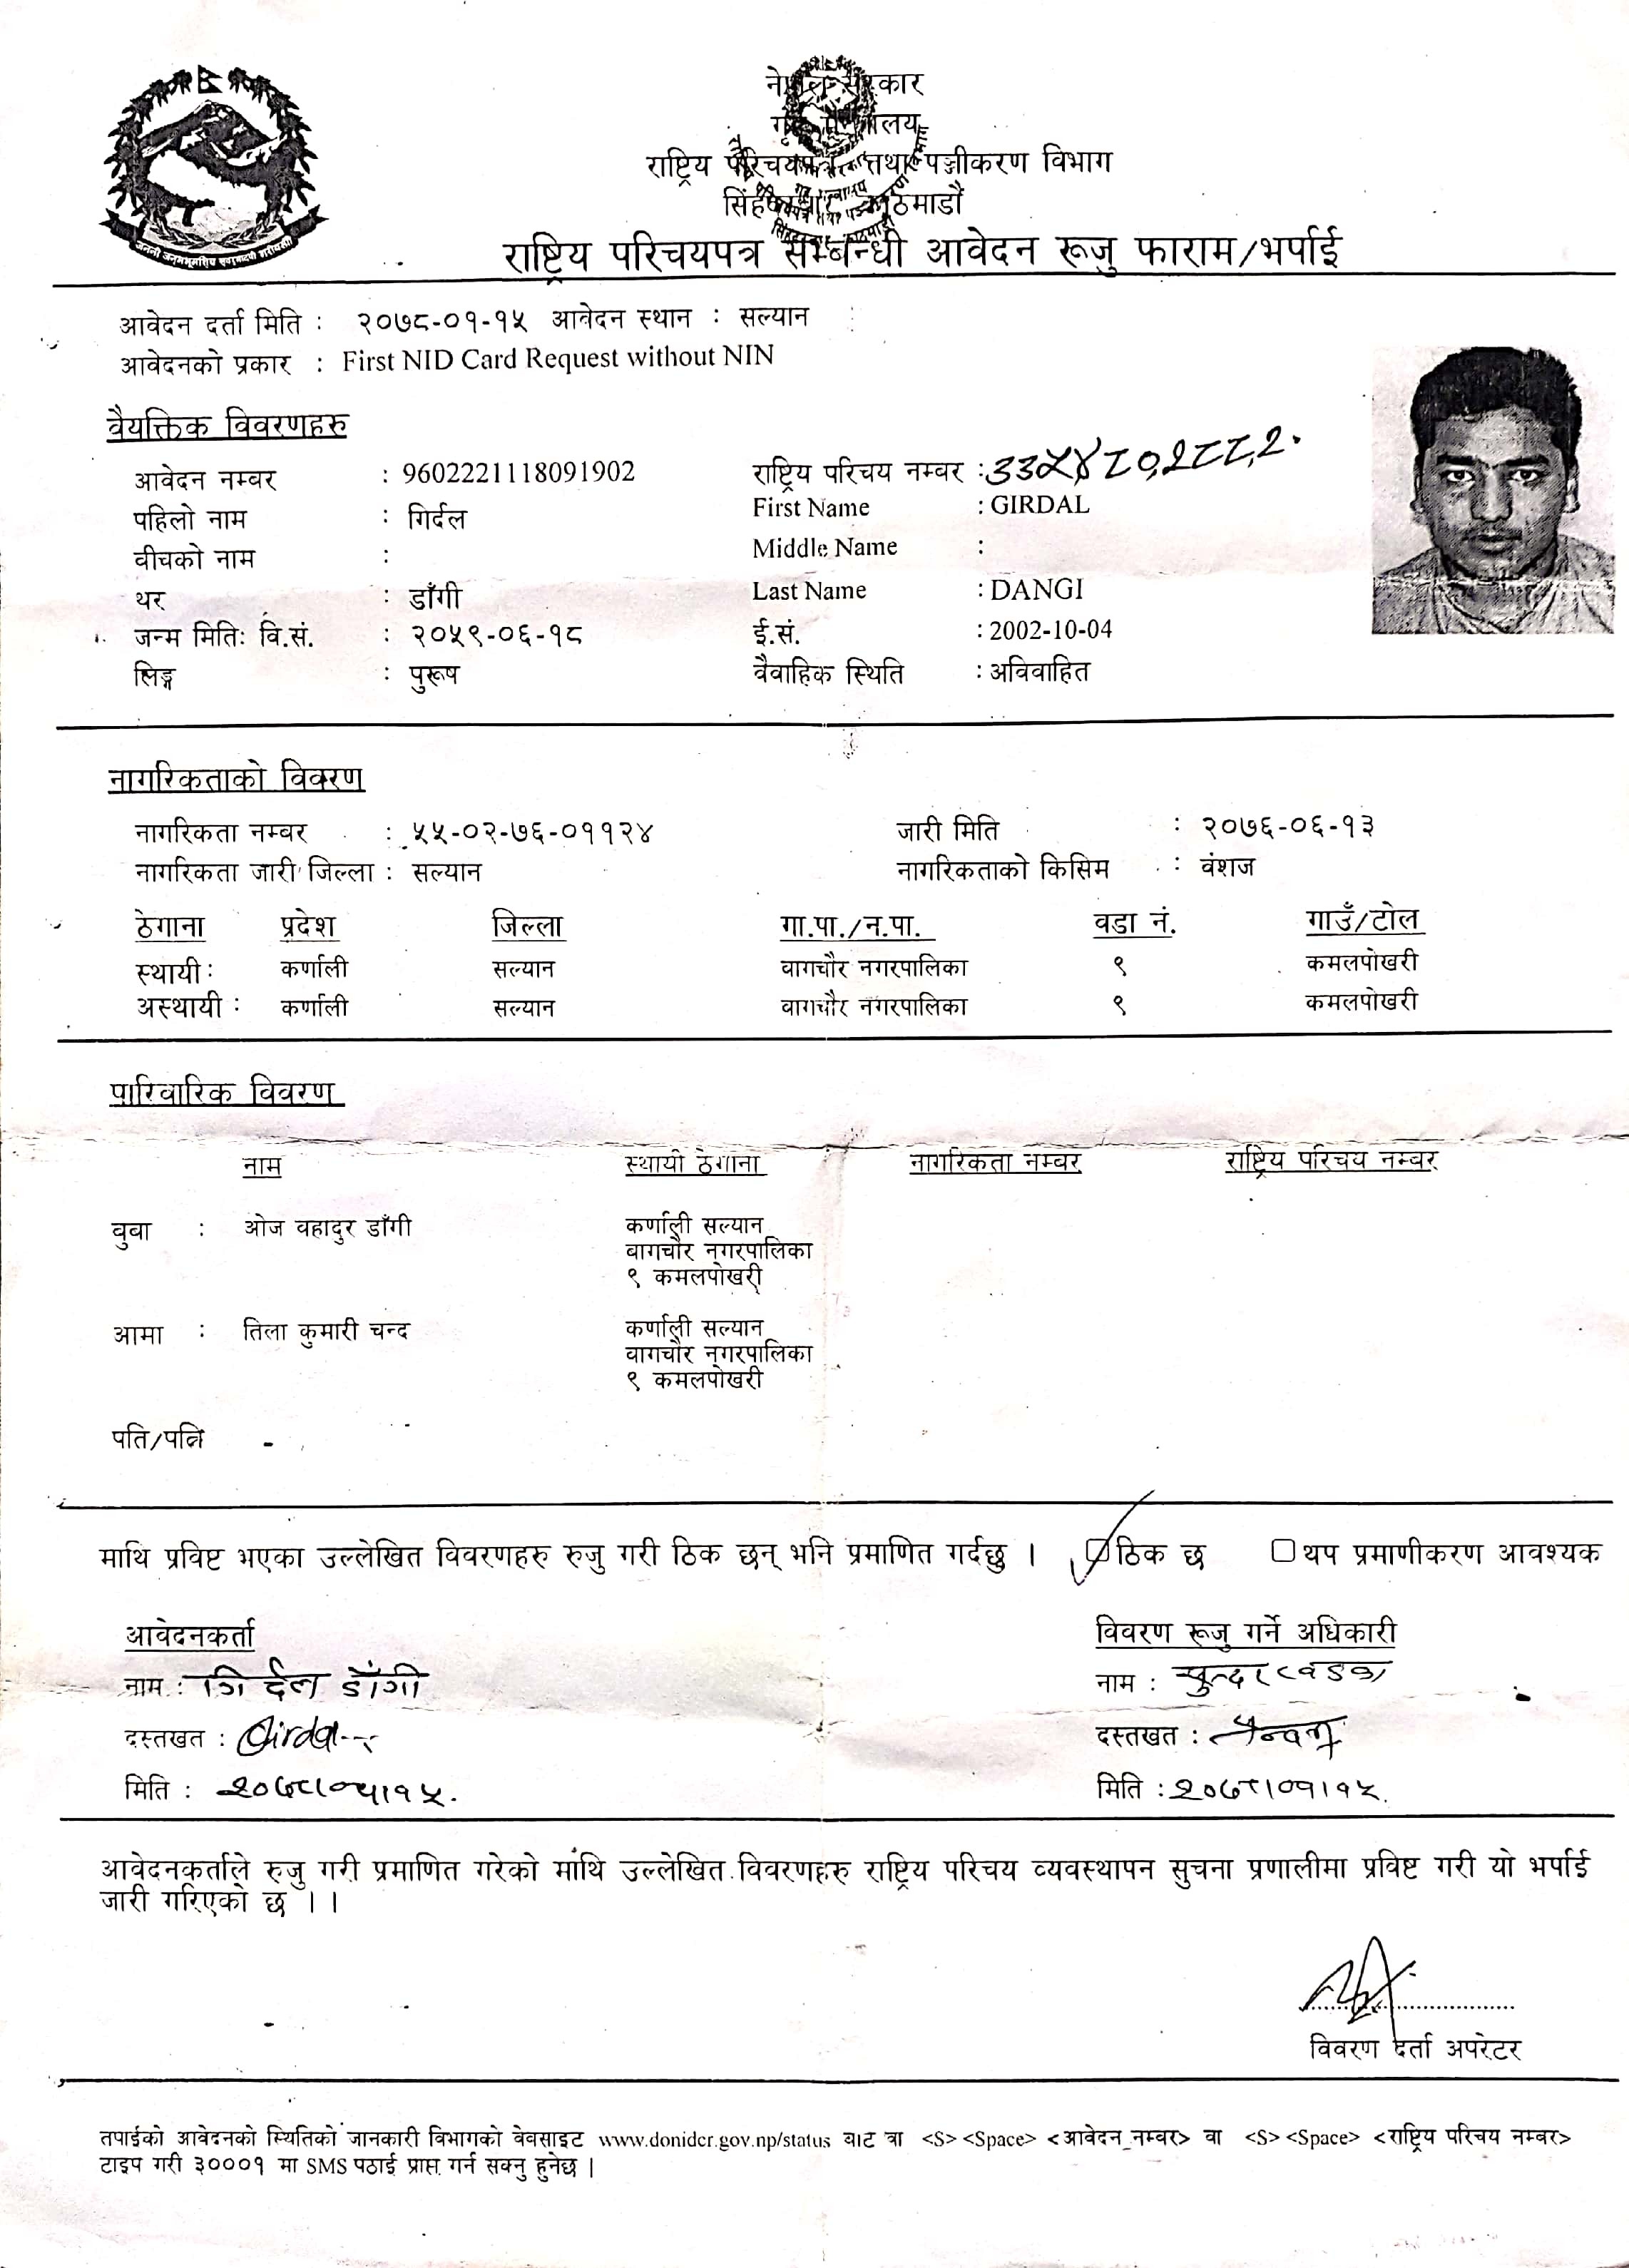 नेपाल सरकार
गृह मन्त्रालय
राष्ट्रिय परिचयपत्र तथा पञ्जीकरण विभाग
सिंहदरबार काठमाडौं
राष्ट्रिय परिचयपत्र सम्बन्धी आवेदन रूजु फाराम/भर्पाई
आवेदन दर्ता मिति : २०७८-०१-१५ आवेदन स्थान : सल्यान
आवेदनको प्रकार : First NID Card Request without NIN
वैयक्तिक विवरणहरु
आवेदन नम्बर : 9602221118091902 राष्ट्रिय परिचय नम्बर :
पहिलो नाम : गिर्दल First Name : GIRDAL
वीचको नाम : Middle Name :
थर : डाँगी Last Name : DANGI
जन्म मितिः वि.सं. : २०५९-०६-१८ ई.सं. : 2002-10-04
लिङ्ग : पुरूष वैवाहिक स्थिति : अविवाहित
नागरिकताको विवरण
नागरिकता नम्बर : ५५-०२-७६-०११२४ जारी मिति : २०७६-०६-१३
नागरिकता जारी जिल्ला : सल्यान नागरिकताको किसिम : वंशज
ठेगाना प्रदेश जिल्ला गा.पा./न.पा. वडा नं. गाउँ/टोल
स्थायी : कर्णाली सल्यान वागचौर नगरपालिका ९ कमलपोखरी
अस्थायी : कर्णाली सल्यान वागचौर नगरपालिका ९ कमलपोखरी
पारिवारिक विवरण
नाम स्थायी ठेगाना नागरिकता नम्बर राष्ट्रिय परिचय नम्बर
बुबा : ओज वहादुर डाँगी कर्णाली सल्यान
वागचौर नगरपालिका
९ कमलपोखरी
आमा : तिला कुमारी चन्द कर्णाली सल्यान
वागचौर नगरपालिका
९ कमलपोखरी
पति/पत्नि -
माथि प्रविष्ट भएका उल्लेखित विवरणहरु रुजु गरी ठिक छन् भनि प्रमाणित गर्दछु । ठिक छ थप प्रमाणीकरण आवश्यक
आवेदनकर्ता विवरण रूजु गर्ने अधिकारी
नाम : गिर्दल डाँगी नाम :
दस्तखत : दस्तखत :
मिति : २०७८।०१।१५. मिति : २०७८।०१।१५.
आवेदनकर्ताले रुजु गरी प्रमाणित गरेको माथि उल्लेखित विवरणहरु राष्ट्रिय परिचय व्यवस्थापन सुचना प्रणालीमा प्रविष्ट गरी यो भर्पाई
जारी गरिएको छ ।।
विवरण दर्ता अपरेटर
तपाईको आवेदनको स्थितिको जानकारी विभागको वेवसाइट www.donidcr.gov.np/status बाट वा <S> <Space> <आवेदन नम्बर> वा <S> <Space> <राष्ट्रिय परिचय नम्बर>
टाइप गरी ३०००१ मा SMS पठाई प्राप्त गर्न सक्नु हुनेछ ।